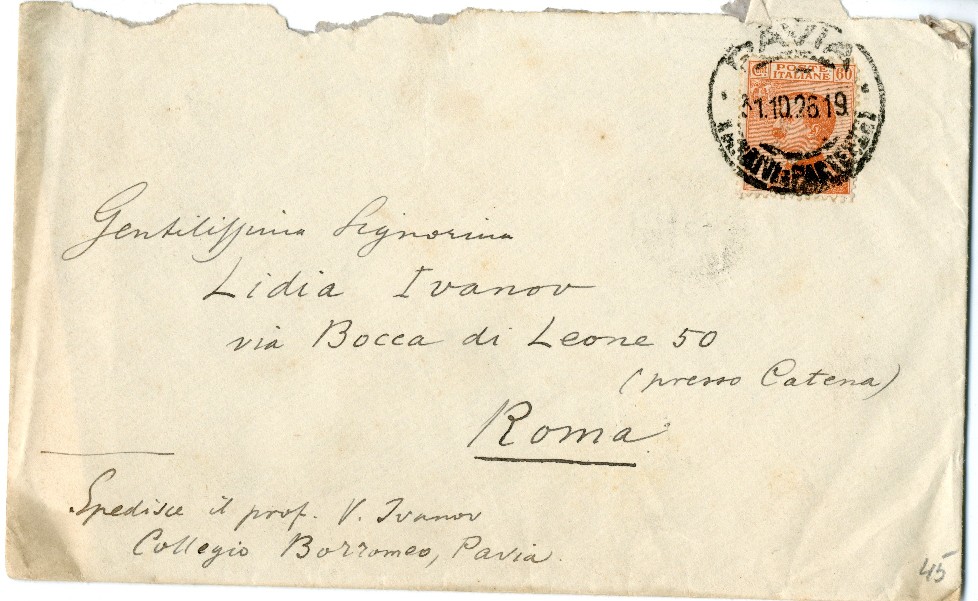 PAVIA
Cmi POSTE ITALIANE 60
31.10.26.19
Gentilissima Signorina
Lidia Ivanov
via Bocca di Leone 50
(presso Catena)
Roma
Spedisce il prof. V. Ivanov
Collegio Borromeo, Pavia.
45